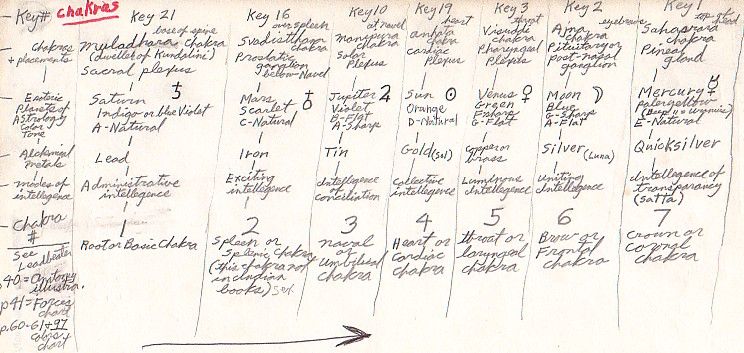 Key# Chakras
Chakras
+ placements
Esoteric
Planets of
Astrology
Color
Tone
Alchemical
metals
modes of
intellegence
Chakra
#
See
Leadbeater
p40=
illustra.
p41=Forces
chart
p.60-61+97
colors
chart
Key 21
base of spine
Muladhara chakra
(dweller of Kundalini)
Sacral plexus
Saturn ♄
Indigo or blue Violet
A-Natural
Lead
Administrative
intellegence
1
Root or Basic Chakra
Key 16
over spleen
Svadisthana
chakra
Prostatic
ganglion
below-Navel
Mars
Scarlet
C-Natural
Iron
Exciting
intellegence
2
Spleen or
Splenic Chakra
(this chakra not
in indian
books)
Key 10
at navel
manipura
chakra
Solar
Plexus
Jupiter ♃
Violet
B-Flat
A-Sharp
Tin
Intellegence
of
conciliation
3
naval
or
umbilical
chakra
Key 19
heart
anhata
chakra
cardiac
Plexus
Sun ☉
Orange
D-Natural
Gold (Sol)
Collective
intellegence
4
Heart or
Cardiac
Chakra
Key 3
throat
Visuddi
chakra
Pharyngal
Plexus
Venus ♀
Green
F-sharp
G-Flat
Copper or
brass
Luminous
Intellegence
5
throat or
laryngeal
chakra
Key 2
eyebrows
Ajna
chakra
Pituitary or
post-nasal
ganglion
Moon ☽
Blue
G-Sharp
A-Flat
Silver (Luna)
Uniting
Intellegence
6
Brow or
Frontal
chakra
Key 1
top of head
Sahasrara
chakra
Pineal
gland
Mercury ☿
pale yellow
E-Natural
Quicksilver
Intellegence of
transparancy
(satta)
7
Crown or
Coronal
chakra